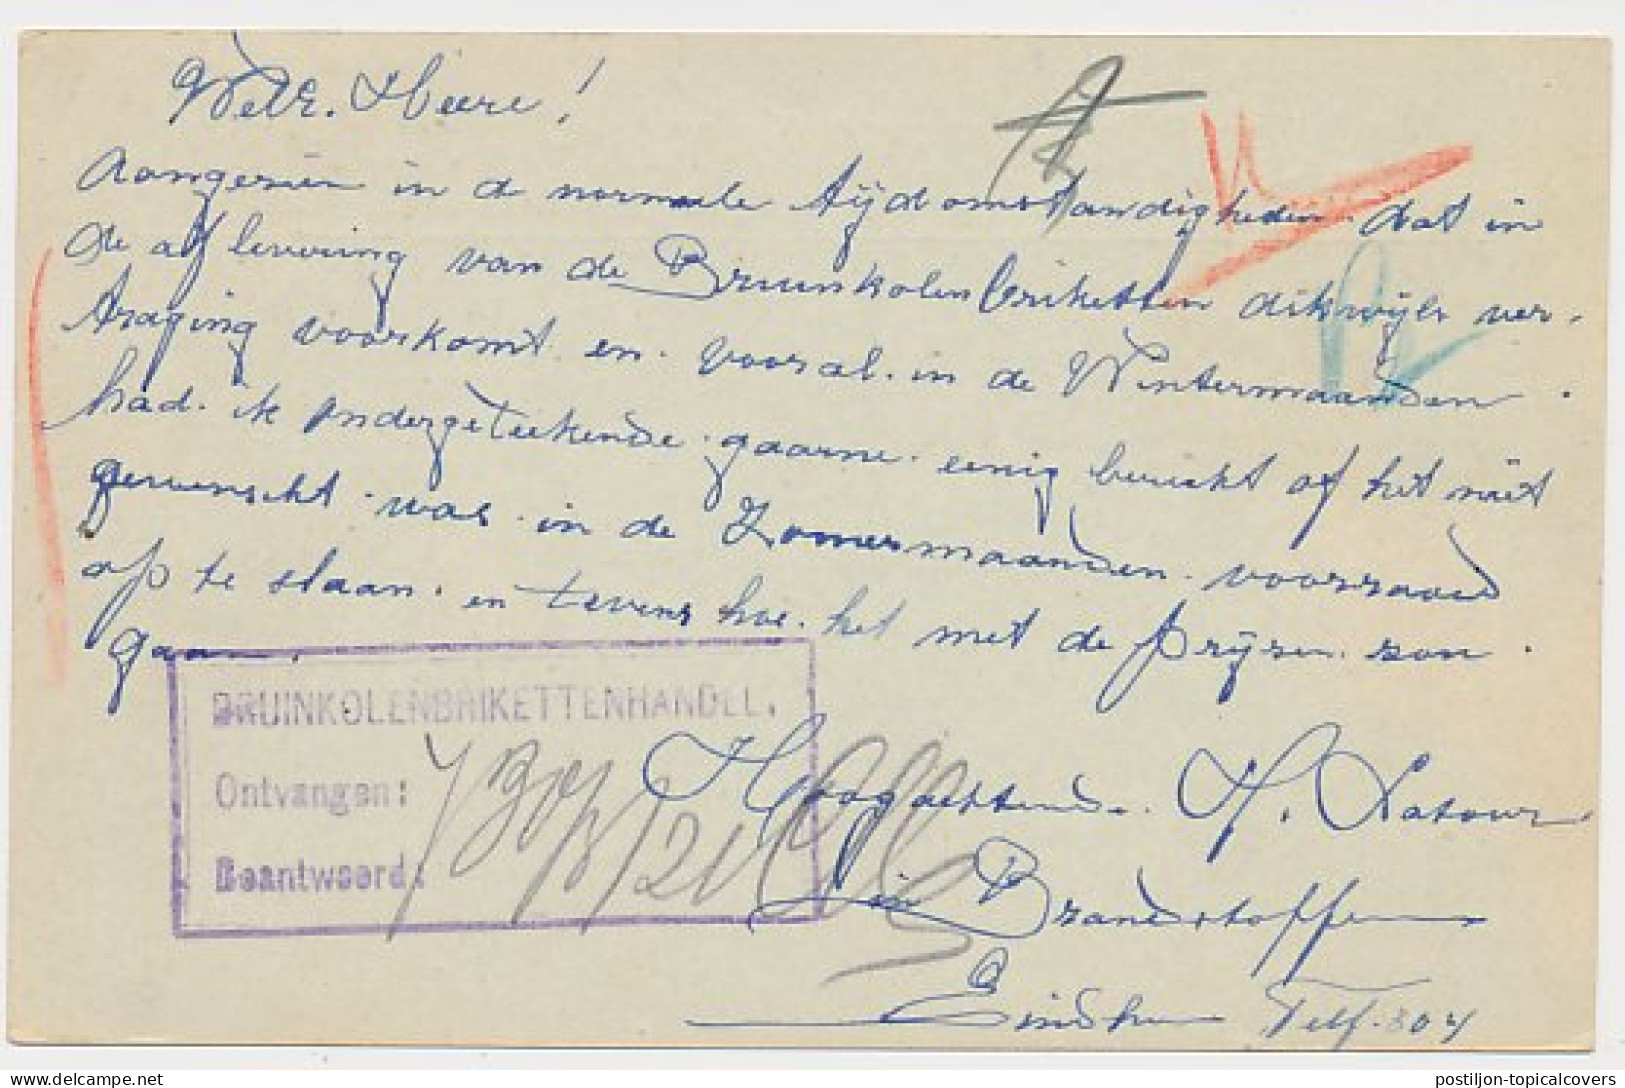 WelE. Heere!
Aangezien in de normale tijdomstandigheden dat in
de aflevering van de Bruinkolenbriketten dikwijls ver-
traging voorkomt en vooral in de Wintermaanden.
had ik ondergeteekende gaarne eenig bericht of het niet
gewenscht was in de Zomermaanden voorraad
op te slaan. en tevens hoe het met de prijzen zou
gaan.
BRUINKOLENBRIKETTENHANDEL.
Ontvangen:
Beantwoord:
Hoogachtend. H. Latour
in Brandstoffen
Eindh Telf. 804
postiljon-topicalcovers